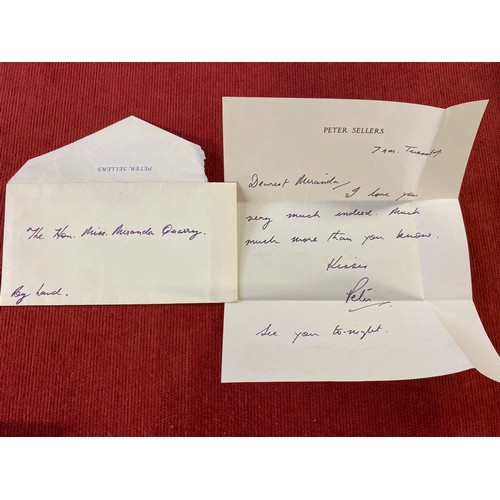 PETER SELLERS
The Hon. Miss. Miranda Quarry.
By hand.
PETER SELLERS
7 am. Tuesday
Dearest Miranda,
I love you
very much indeed. Much
much more than you know.
Kisses
Peter
See you to-night.